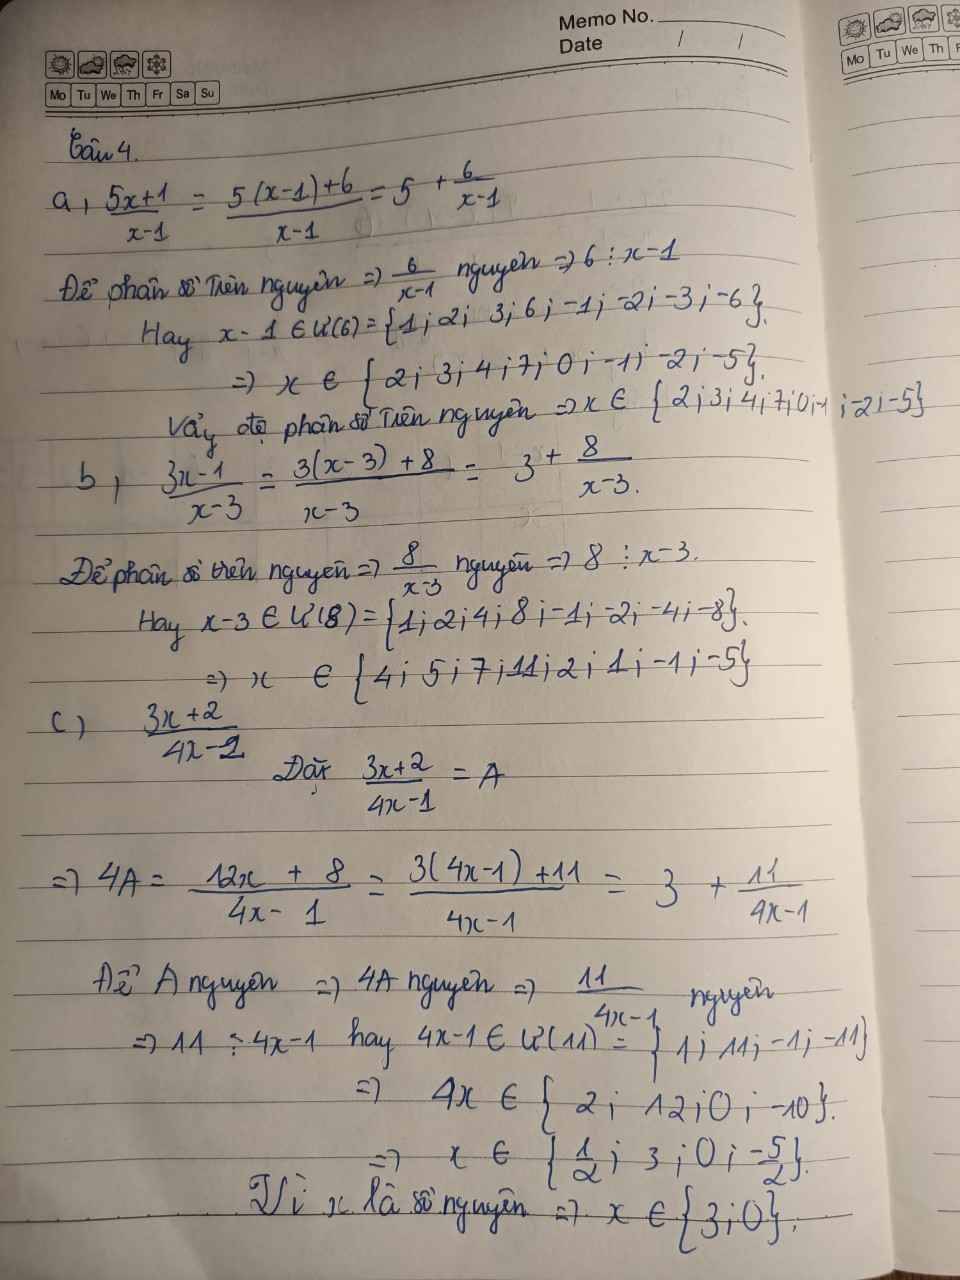 Memo No.
Date / /
Mo Tu We Th Fr Sa Su
Mo Tu We Th F
Câu 4.
a, 5x+1/x-1 = 5(x-1)+6/x-1 = 5 + 6/x-1
Để phân số trên nguyên => 6/x-1 nguyên => 6 ⋮ x-1
Hay x-1 ∈ Ư(6) = {1; 2; 3; 6; -1; -2; -3; -6}.
=> x ∈ {2; 3; 4; 7; 0; -1; -2; -5}.
Vậy để phân số trên nguyên => x ∈ {2; 3; 4; 7; 0; -1; -2; -5}
b, 3x-1/x-3 = 3(x-3)+8/x-3 = 3 + 8/x-3.
Để phân số trên nguyên => 8/x-3 nguyên => 8 ⋮ x-3.
Hay x-3 ∈ Ư(8) = {1; 2; 4; 8; -1; -2; -4; -8}.
=> x ∈ {4; 5; 7; 11; 2; 1; -1; -5}
c) 3x+2/4x-1
Đặt 3x+2/4x-1 = A
=> 4A = 12x + 8/4x - 1 = 3(4x-1)+11/4x-1 = 3 + 11/4x-1
Để A nguyên => 4A nguyên => 11/4x-1 nguyên
=> 11 ⋮ 4x-1 hay 4x-1 ∈ Ư(11) = {1; 11; -1; -11}
=> 4x ∈ {2; 12; 0; -10}.
=> x ∈ {1/2; 3; 0; -5/2}.
Vì x là số nguyên => x ∈ {3; 0}.